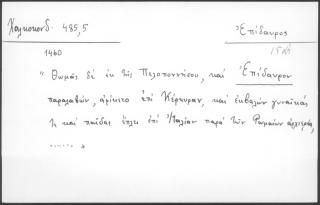 Χαλκοκονδ. 485,5
Ἐπίδαυρος
1460
" Θωμᾶς δὲ ἐκ τῆς Πελοποννήσου, καὶ Ἐπίδαυρον
παραλαβών, ἀφίκετο ἐπὶ Κέρκυραν, καὶ ἐκβαλὼν γυναῖκάς
τε καὶ παῖδας ἔπλει ἐπὶ Ἰταλίαν παρὰ τῶν Ῥωμαίων ἀρχιερέα,